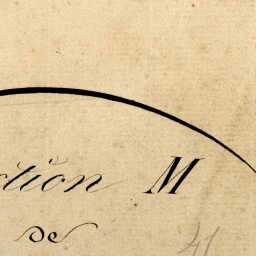 ction M
de
41